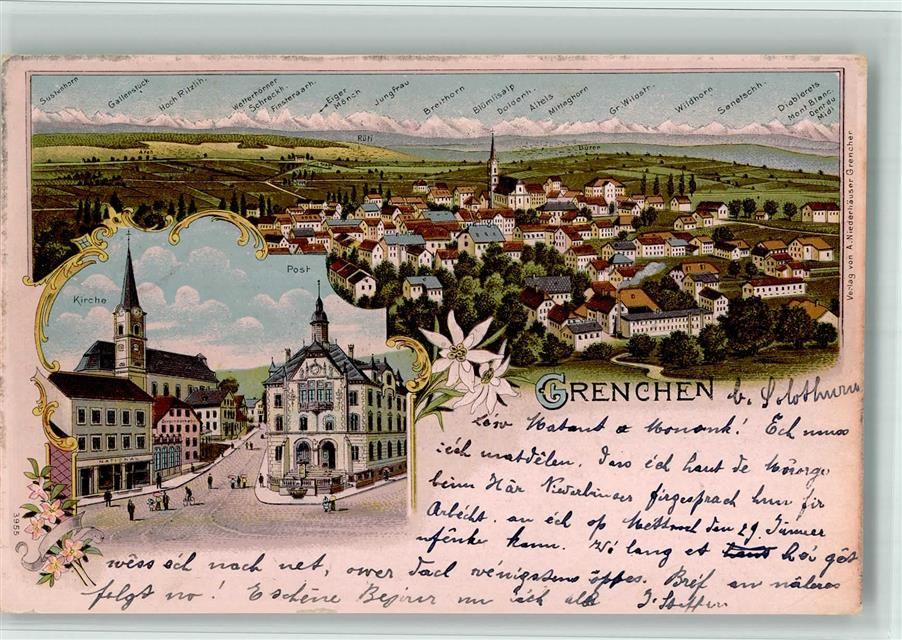 Sustenhorn
Gallenstock
Hoch Ritzlih.
Wetterhörner
Schreckh.
Finsteraarh.
Eiger
Mönch
Jungfrau
Breithorn
Blümlisalp
Doldenh.
Altels
Mittaghorn
Gr. Wilostr.
Wildhorn
Sanetschh.
Diablerets
Mont Blanc
Dent du
Midi
Rüti
Büren
Kirche
Post
NATIONAL
GRENCHEN b. Solothurn
Matant & Mononk! Ech muss
iéch matdêlen, dass éch haut de Mörge
beim Här Niederbirger firgesprach hun fir
Arbécht. an éch op Mettwoch den 29 Jänner
ufénke kann. Wé lang et hei gêt
wêss éch nach net, ower dach wénigstens öppes. Bréf an näheres
folgt no! E schéne Bejour un iéch all J. Steffen
Verlag von A. Niederhäuser Grenchen
3955